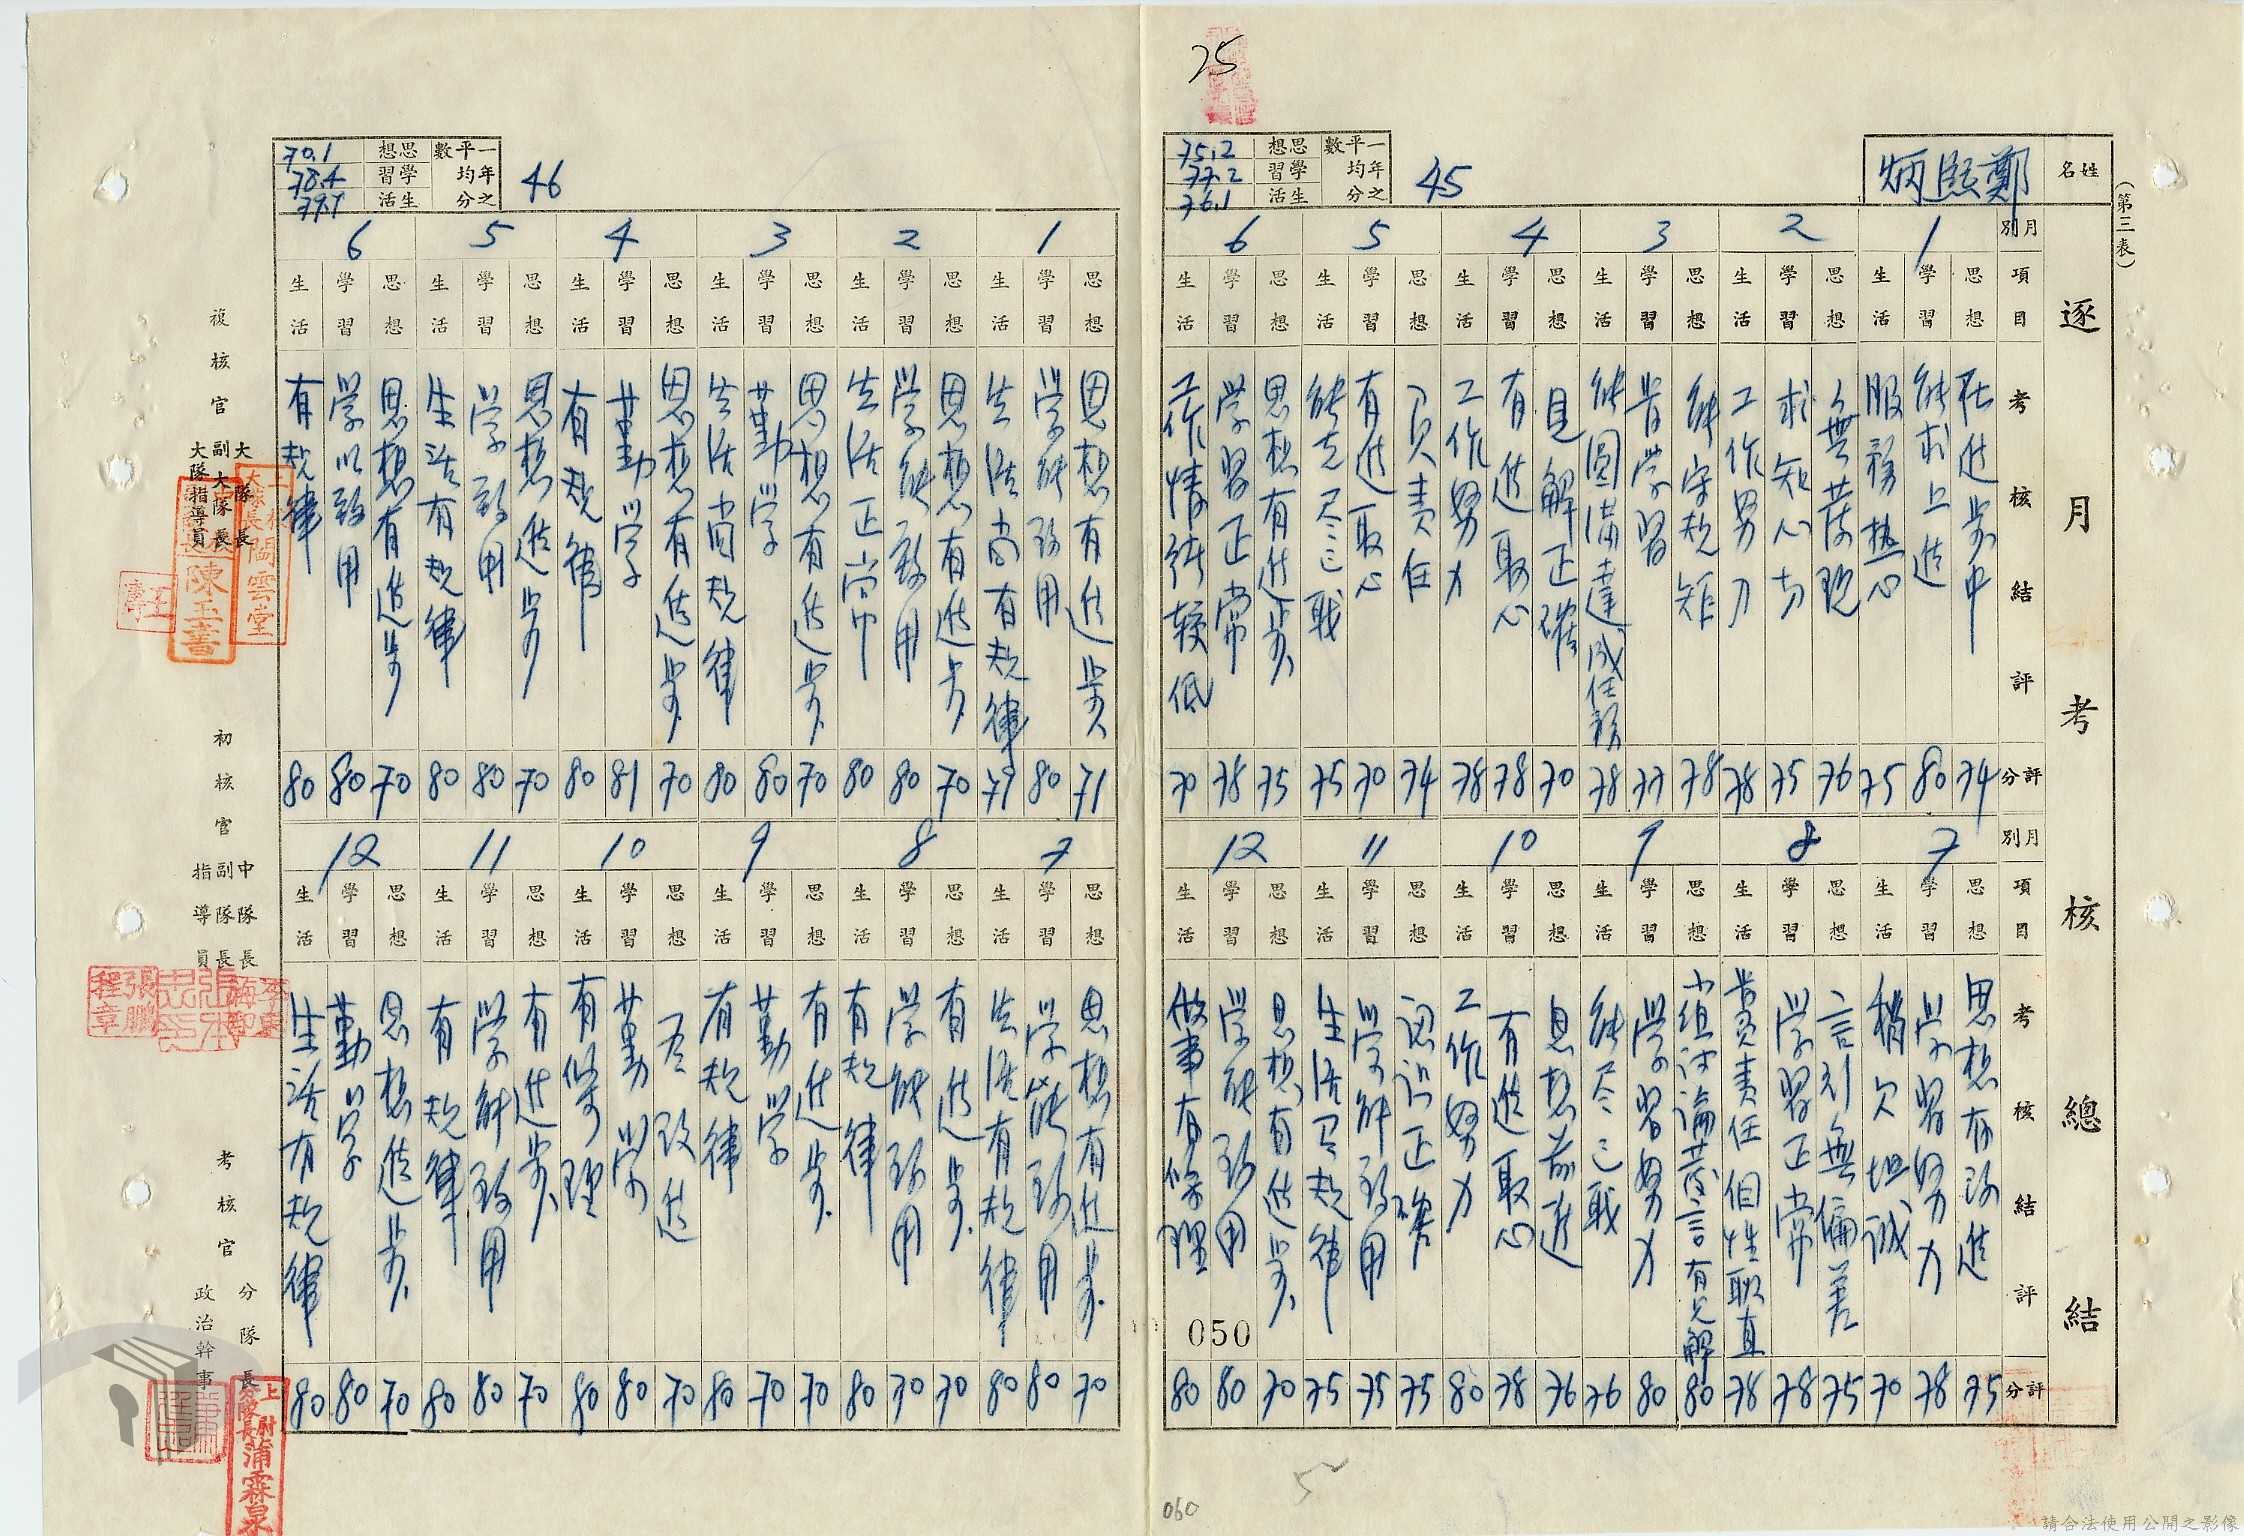 25
(第三表)
姓名
鄭熙炳
逐月考核總結
45
一年之平均分數
思想 75.2
學習 77.2
生活 76.1
月別
1
2
3
4
5
6
項目
思想
學習
生活
思想
學習
生活
思想
學習
生活
思想
學習
生活
思想
學習
生活
思想
學習
生活
考核結評
在进步中
能求上进
服務热心
求知心切
工作努力
能守規矩
肯学習
能圓滿達成任務
見解正確
有进取心
工作努力
負責任
有进取心
能克尽己職
思想有进步
学習正常
工作情緒較低
評分
74
80
75
76
75
78
78
77
78
70
78
78
74
70
75
75
78
70
月別
7
8
9
10
11
12
項目
思想
學習
生活
思想
學習
生活
思想
學習
生活
思想
學習
生活
思想
學習
生活
思想
學習
生活
考核結評
思想有改进
学習努力
稍欠坦誠
言行無偏差
学習正常
負責任個性耿直
小組討論發言有見解
学習努力
能尽己職
思想前进
有进取心
工作努力
認识正確
学能致用
生活有規律
思想有进步
学能致用
做事有條理
評分
75
78
70
75
78
78
80
80
76
76
78
80
75
75
75
70
80
80
050
46
一年之平均分數
思想 70.1
學習 78.4
生活 79.9
1
2
3
4
5
6
思想
學習
生活
思想
學習
生活
思想
學習
生活
思想
學習
生活
思想
學習
生活
思想
學習
生活
思想有进步
学能致用
生活尚有規律
思想有进步
学能致用
生活正常
思想有进步
勤学
生活尚規律
思想有进步
勤学
有規律
思想进步
学致用
生活有規律
思想有进步
学以致用
有規律
71
80
79
70
80
80
70
80
80
70
81
80
70
80
80
70
80
80
7
8
9
10
11
12
思想
學習
生活
思想
學習
生活
思想
學習
生活
思想
學習
生活
思想
學習
生活
思想
學習
生活
思想有进步
学能致用
生活有規律
有进步
学能致用
有規律
有进步
勤学
有規律
有改进
勤学
有條理
有进步
学能致用
有規律
思想进步
勤学
生活有規律
70
80
80
70
70
80
70
70
80
70
80
80
70
80
80
70
80
80
複核官
大隊長
副大隊長
大隊指導員
閻雲堂
陳玉書
初核官
中隊長
副隊長
指導員
張鵬程章
考核官
分隊長
政治幹事
上尉分隊長蒲霖泉
52
060
請合法使用公開之影像